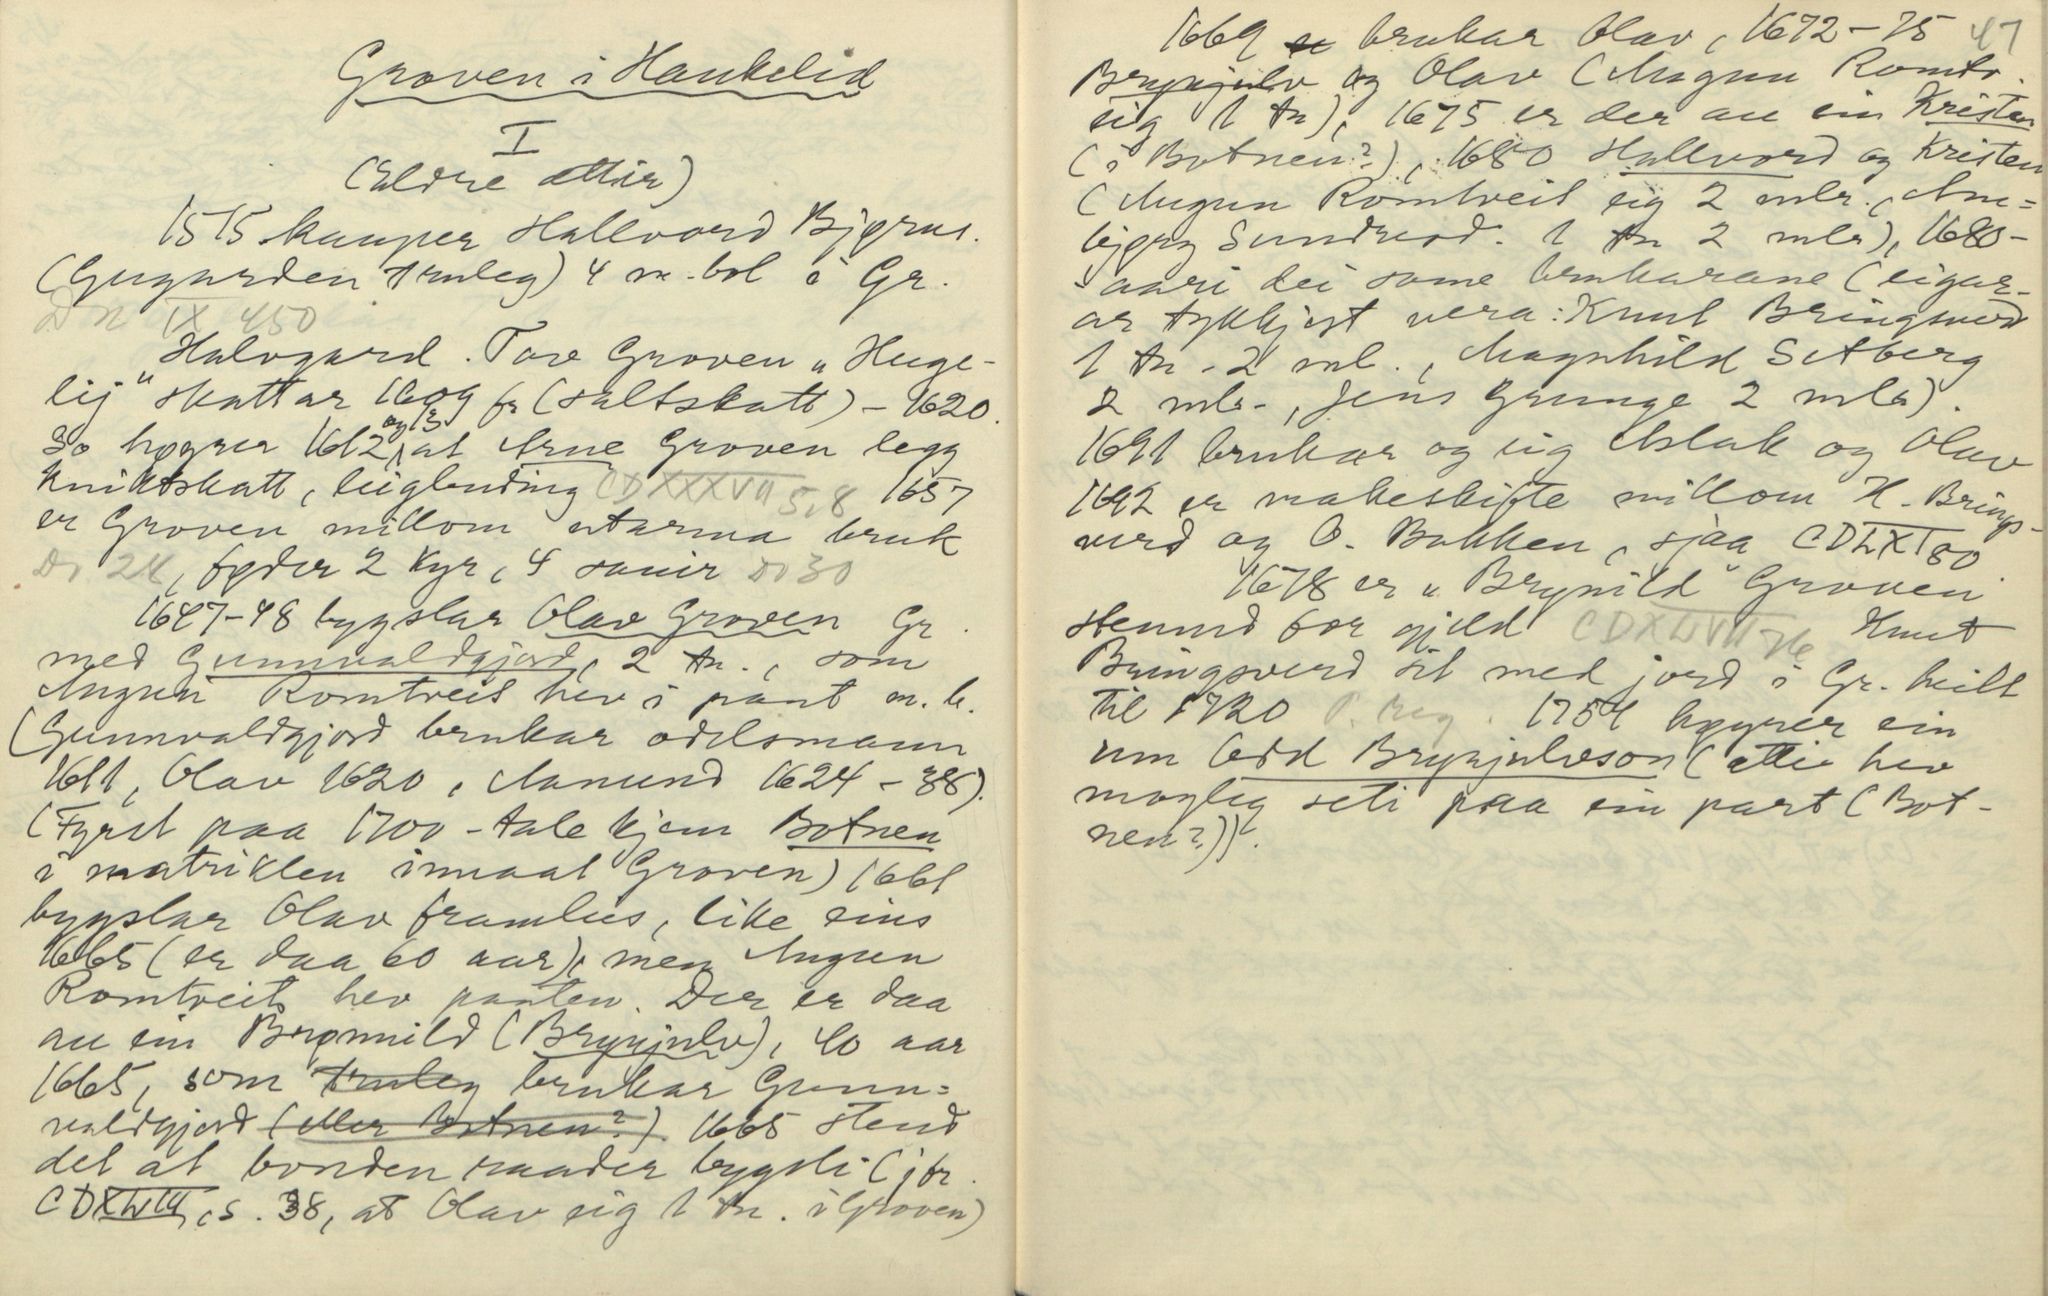 Groven i Haukelid
I
(Eldre ættir)
1575 kauper Hallvord Bjørns.
(Gugarden truleg) 4 m-bol i Gr.
DN IX 450
Halvgard. Tov Groven "Heuge-
lij" skattar 1609 fr (saltskatt) - 1620.
So høyrer 1612 og 13 at Arne Groven legg
kniktskatt, leiglending CDXXXVII 5,8 1657
er Groven millom utarma bruk
Do 24, føder 2 kyr, 4 sauir Do 30
1647-48 bygslar Olav Groven Gr.
med Gunnvaldgjord, 2 tn., som
Augun Romtveit hev i pant m. k.
(Gunnvaldgjord brukar odelsmann
1611, Olav 1620, Aamund 1624 - 38).
(Fyrst paa 1700-tale kjem Botnen
i matriklen innaat Groven) 1661
bygslar Olav framleis, like eins
1665 (er daa 60 aar), men Augun
Romtveit hev panten. Der er daa
au ein Brynnild (Brynjulv), 40 aar
1665, som truleg brukar Gunn=
valdgjord (eller Botnen?). 1665 stend
det at bonden raader bygsli (jfr.
CDXLVIII, s. 38, at Olav eig 1 tn. i Groven)
47
1669 brukar Olav, 1672-75
Brynjulv og Olav (Augun Romtv.
eig 1 tn), 1675 er der au ein Kristen
(i Botnen?), 1680 Hallvord og Kristen
(Augun Romtveit eig 2 mlr., Ane=
bjørg Sundverd. 1 tn 2 mlr), 1680-
aari dei same brukarane (eigar-
ar tykkjest vera: Knut Bringsverd
1 tn. 2 ml., Magnhild Setberg
2 mlr., Jens Grunge 2 mlr).
1691 brukar og eig Aslak og Olav
1692 er makeskifte millom K. Brings-
verd og O. Bakken, sjaa CDLXI 80.
1678 er "Brynild" Groven
stemnd for gjeld CDXLVII 76 Knut
Bringsverd sit med jord i Gr. heilt
til 1720 P. reg. 1754 høyrer ein
um Odd Brynjulvson (ætti hev
mogleg seti paa ein part (Bot-
nen?)).